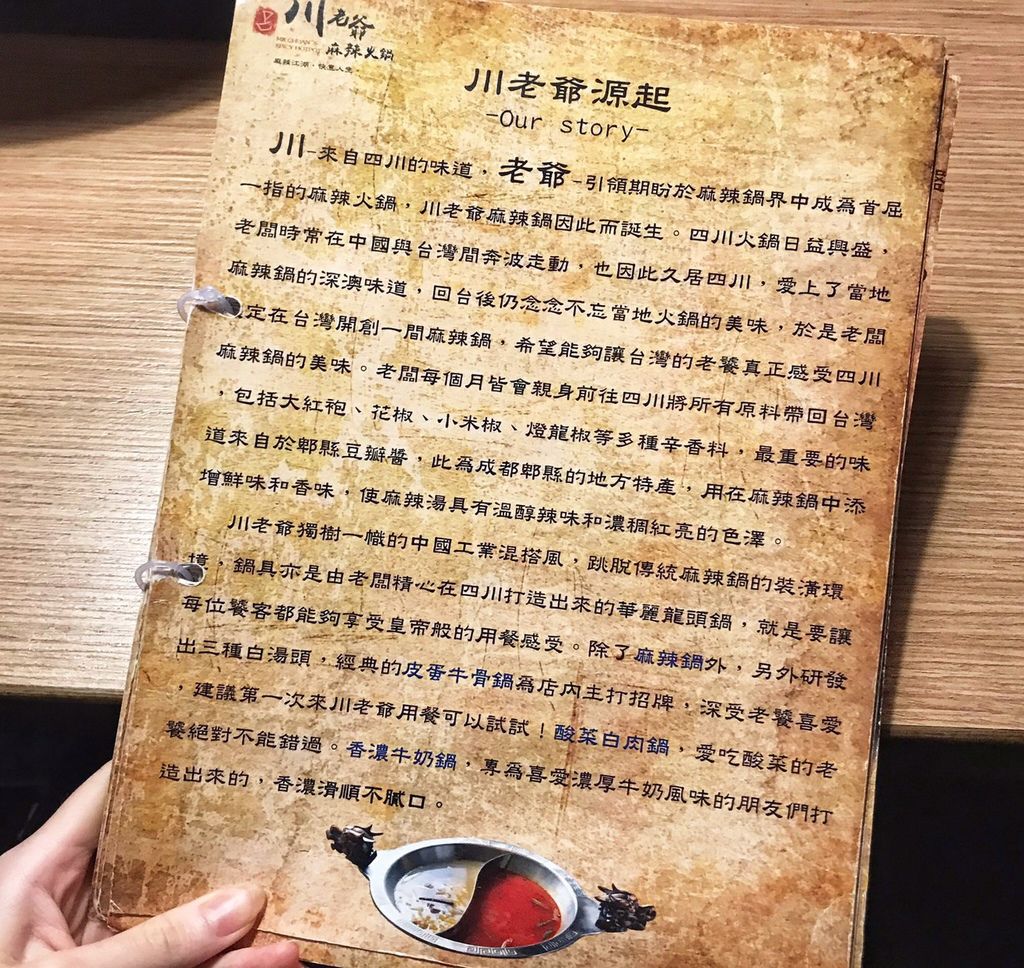 川老爺
MR.CHUAN'S
SPICY HOTPOT
麻辣火鍋
麻辣江湖·快意人生
川老爺源起
-Our story-
川-來自四川的味道，老爺-引領期盼於麻辣鍋界中成為首屈
一指的麻辣火鍋，川老爺麻辣鍋因此而誕生。四川火鍋日益興盛，
老闆時常在中國與台灣間奔波走動，也因此久居四川，愛上了當地
麻辣鍋的深澳味道，回台後仍念念不忘當地火鍋的美味，於是老闆
定在台灣開創一間麻辣鍋，希望能夠讓台灣的老饕真正感受四川
麻辣鍋的美味。老闆每個月皆會親身前往四川將所有原料帶回台灣
，包括大紅袍、花椒、小米椒、燈龍椒等多種辛香料，最重要的味
道來自於郫縣豆瓣醬，此為成都郫縣的地方特產，用在麻辣鍋中添
增鮮味和香味，使麻辣湯具有溫醇辣味和濃稠紅亮的色澤。
川老爺獨樹一幟的中國工業混搭風，跳脫傳統麻辣鍋的裝潢環
境，鍋具亦是由老闆精心在四川打造出來的華麗龍頭鍋，就是要讓
每位饕客都能夠享受皇帝般的用餐感受。除了麻辣鍋外，另外研發
出三種白湯頭，經典的皮蛋牛骨鍋為店內主打招牌，深受老饕喜愛
，建議第一次來川老爺用餐可以試試！酸菜白肉鍋，愛吃酸菜的老
饕絕對不能錯過。香濃牛奶鍋，專為喜愛濃厚牛奶風味的朋友們打
造出來的，香濃滑順不膩口。